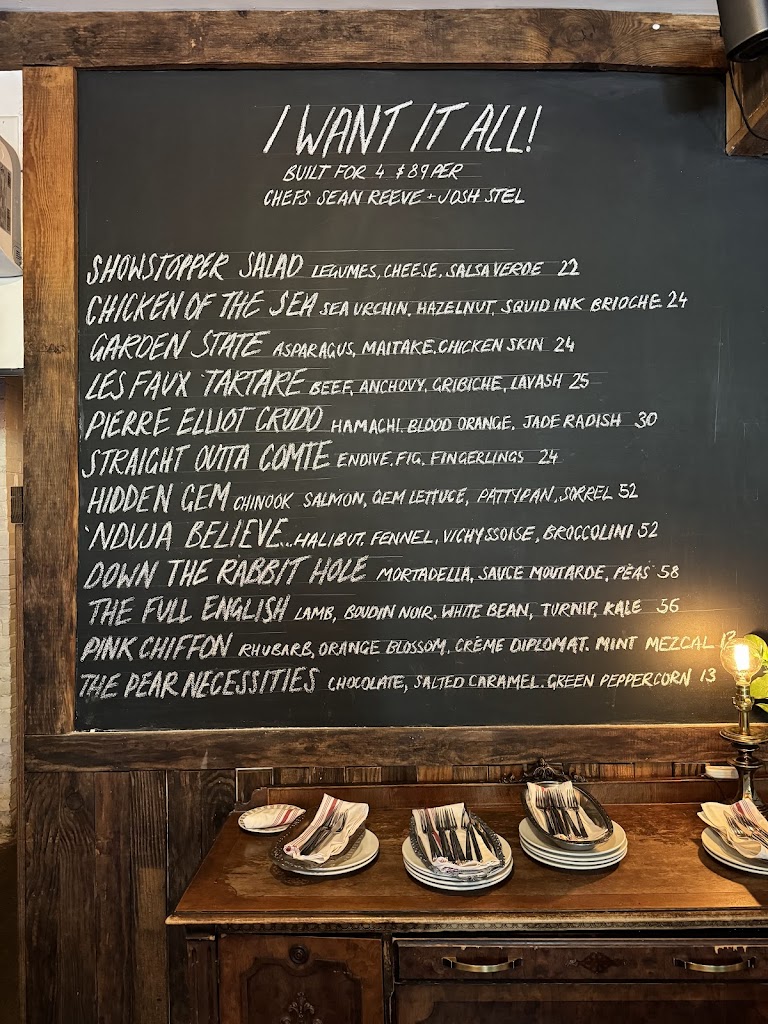 I WANT IT ALL!
BUILT FOR 4 $89 PER
CHEFS SEAN REEVE + JOSH STEL
SHOWSTOPPER SALAD LEGUMES, CHEESE, SALSA VERDE 22
CHICKEN OF THE SEA SEA URCHIN, HAZELNUT, SQUID INK BRIOCHE 24
GARDEN STATE ASPARAGUS, MAITAKE, CHICKEN SKIN 24
LES FAUX TARTARE BEEF, ANCHOVY, GRIBICHE, LAVASH 25
PIERRE ELLIOT CRUDO HAMACHI, BLOOD ORANGE, JADE RADISH 30
STRAIGHT OUTTA COMTE ENDIVE, FIG, FINGERLINGS 24
HIDDEN GEM CHINOOK SALMON, GEM LETTUCE, PATTYPAN, SORREL 52
'NDUJA BELIEVE...HALIBUT, FENNEL, VICHYSSOISE, BROCCOLINI 52
DOWN THE RABBIT HOLE MORTADELLA, SAUCE MOUTARDE, PEAS 58
THE FULL ENGLISH LAMB, BOUDIN NOIR, WHITE BEAN, TURNIP, KALE 56
PINK CHIFFON RHUBARB, ORANGE BLOSSOM, CRÈME DIPLOMAT. MINT MEZCAL
THE PEAR NECESSITIES CHOCOLATE, SALTED CARAMEL. GREEN PEPPERCORN 13